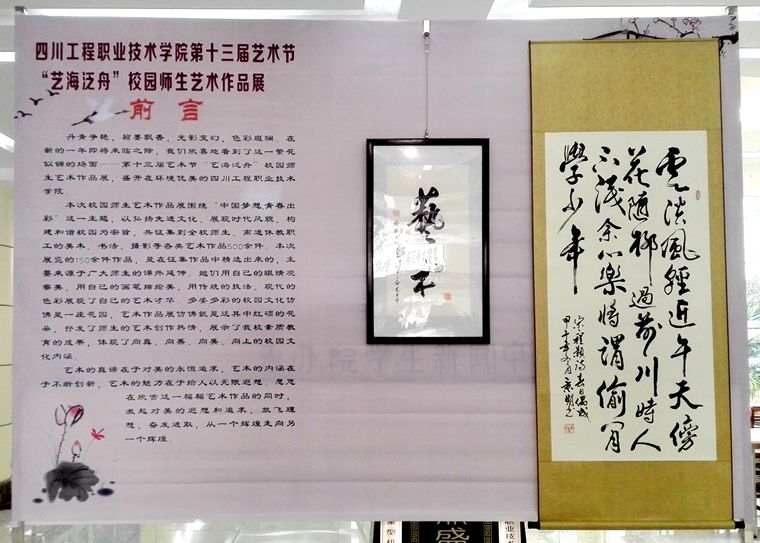 四川工程职业技术学院第十三届艺术节
“艺海泛舟”校园师生艺术作品展
前 言
丹青争艳，翰墨飘香，光影变幻，色彩斑斓。在
新的一年即将来临之际，我们欣喜地看到了这一繁花
似锦的场面——第十三届艺术节“艺海泛舟”校园师
生艺术作品展，盛开在环境优美的四川工程职业技术
学院。
本次校园师生艺术作品展围绕“中国梦想，青春出
彩”这一主题，以弘扬先进文化、展现时代风貌、构建
和谐校园为宗旨，共征集到全校师生、离退休教职
工的美术、书法、摄影等各类艺术作品500余件。本次
展览的150余件作品，是在征集作品中精选出来的，主
要来源于广大师生的课外延伸。他们用自己的眼睛观
审美，用自己的画笔描绘美，用传统的技法、现代的
色彩展现了自己的艺术才华。多姿多彩的校园文化仿
佛是一座花园，艺术作品展仿佛就是这其中红硕的花
朵，抒发了师生的艺术创作热情，展示了我校素质教育
的成果，体现了向真、向善、向美、向上的校园文
化内涵。
艺术的真谛在于对美的永恒追求，艺术的内涵在
于不断创新，艺术的魅力在于给人以无限遐想。愿您
在欣赏这一幅幅艺术作品的同时，
激起对美的遐想和追求，放飞理
想，奋发进取，从一个辉煌走向另
一个辉煌。
藝术
云淡風輕近午天傍
花随柳過前川時人
不識余心樂将謂偷閒
學少年
宋程颢詩春日偶成